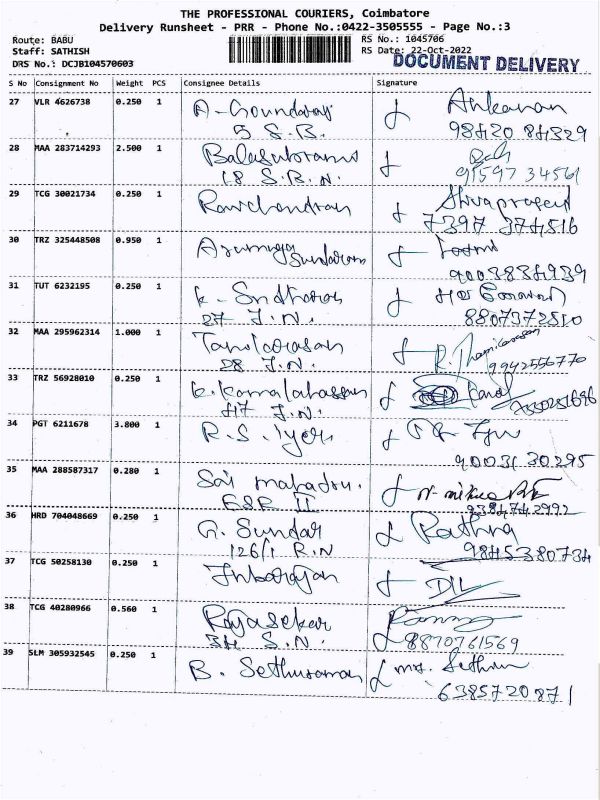 THE PROFESSIONAL COURIERS, Coimbatore
Delivery Runsheet - PRR - Phone No.:0422-3505555 - Page No.:3
Route: BABU RS No.: 1045706
Staff: SATHISH RS Date: 22-Oct-2022
DRS No.: DCJB104570603 DOCUMENT DELIVERY
S No Consignment No Weight PCS Consignee Details Signature
27 VLR 4626738 0.250 1
5 S.B. 98420 84329
28 MAA 283714293 2.500 1 Balasubrami
18 S.B.N. 91597 34561
29 TCG 30021734 0.250 1 Ravichandran Shivaprasad
7397 374516
30 TRZ 325448508 0.950 1 Arumuga Sundaram
9003834939
31 TUT 6232195 0.250 1
27 J.N. 8807372510
32 MAA 295962314 1.000 1 Tamilarasan
28 J.N. 9942556770
33 TRZ 56928010 0.250 1 K. Kamalahassan
47 J.N.
34 PGT 6211678 3.800 1 R.S. Iyer
90031 30295
35 MAA 288587317 0.280 1 Sai
ESR II 9384742992
36 HRD 704048669 0.250 1 G. Sundar Rathna
126/1 R.N 9845380734
37 TCG 50258130 0.250 1 Inbarajan
38 TCG 40280966 0.560 1 Rajasekar
34 S.N. 8870761569
39 SLM 305932545 0.250 1 B. Sethuraman
6385720871